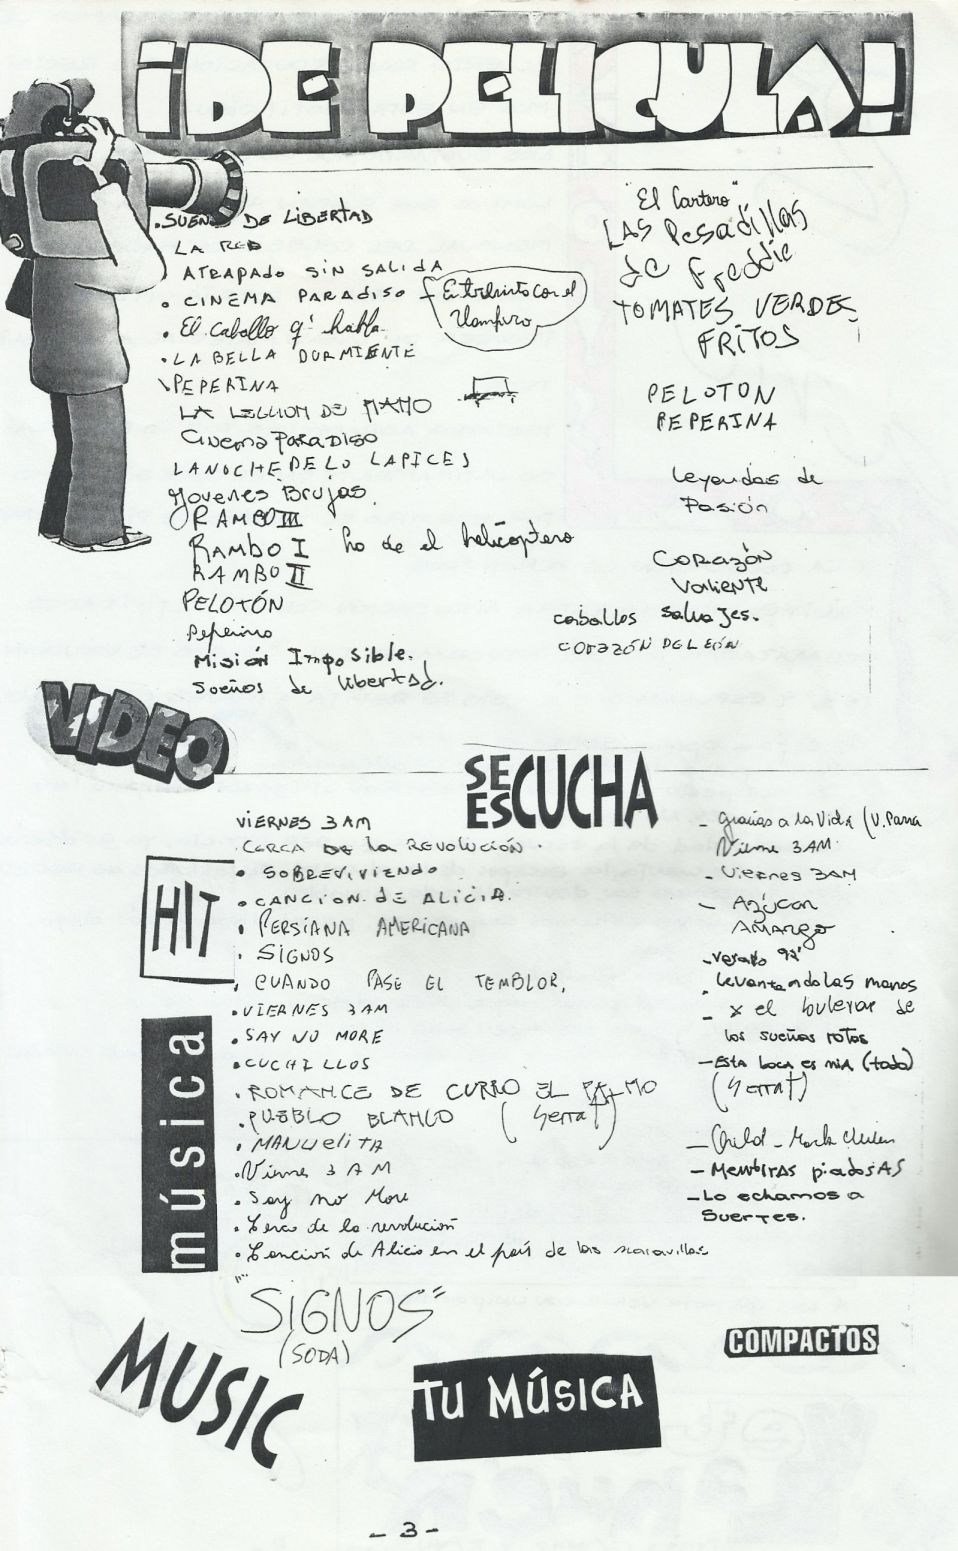 ¡DE PELICULA!
SUEÑOS DE LIBERTAD
LA RED
ATRAPADO SIN SALIDA
CINEMA PARADISO
Entrevista con el
Vampiro
El caballo q' habla
LA BELLA DURMIENTE
PEPERINA
LA LECCION DE PIANO
Cinema Paradiso
LA NOCHE DE LO LAPICES
Jovenes Brujas
RAMBO III
RAMBO I ho de el helicóptero
RAMBO II
PELOTÓN
Peperina
Misión Imposible.
Sueños de libertad.
"El Cartero"
LAS Pesadillas
de Freddie
TOMATES VERDES
FRITOS
PELOTON
PEPERINA
Leyendas de
Pasión
Corazón
Valiente
caballos salvajes.
CORAZÓN DE LEÓN
VIDEO
SE ESCUCHA
HIT
música
VIERNES 3 AM
CERCA DE la REVOLUCIÓN.
SOBREVIVIENDO
CANCION DE ALICIA.
PERSIANA AMERICANA
SIGNOS
CUANDO PASE EL TEMBLOR,
VIERNES 3 AM
SAY NO MORE
CUCHILLOS
ROMANCE DE CURRO EL PALMO
PUEBLO BLANCO (Serrat)
MANUELITA
Vierne 3 AM
Say no More
Cerca de la revolución
Canción de Alicia en el país de las maravillas
"SIGNOS"
(SODA)
- Gracias a la Vida (V. Parra
Vierne 3AM
- Viernes 3AM
- Azúcar
AMARgo
- Verano 92'
Levantando las manos
- x el bulevar de
los sueños rotos
- Esta boca es mia (todo)
(Serrat)
- Child - Mark
- Mentiras piadosAS
- Lo echamos a
Suertes.
MUSIC
TU MÚSICA
COMPACTOS
- 3 -